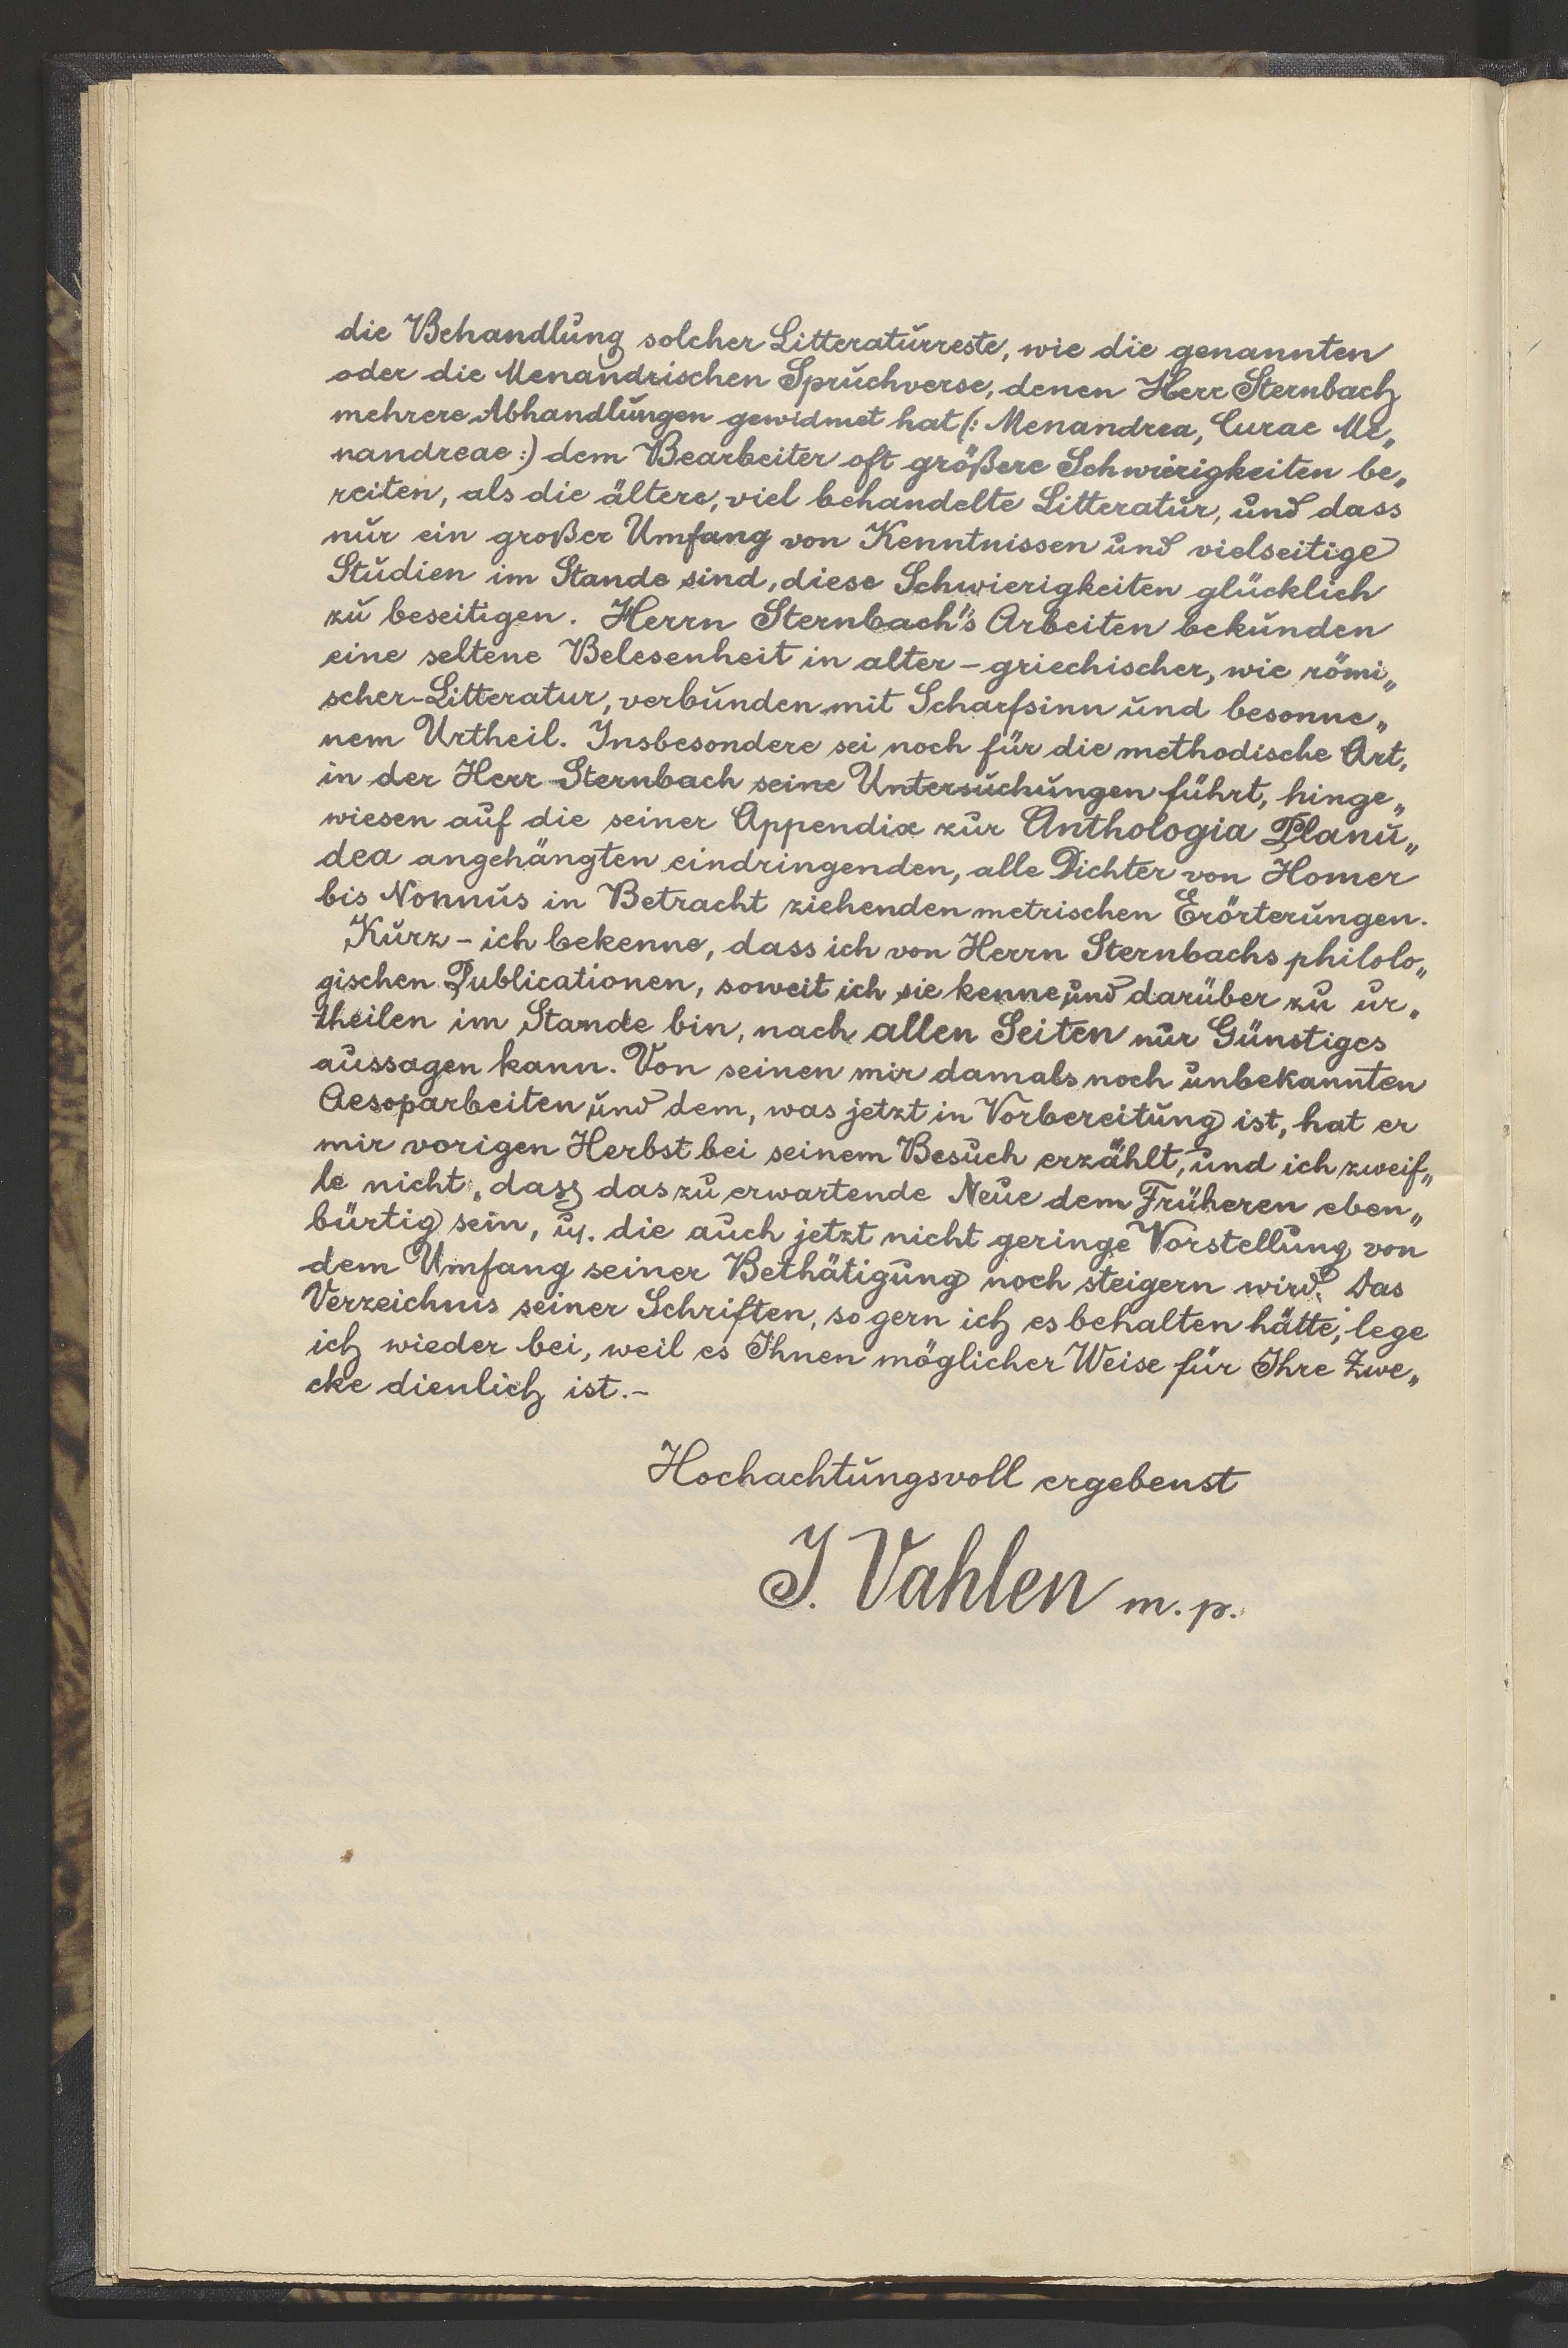 die Behandlung solcher Litteraturreste, wie die genannten
oder die Menandrischen Spruchverse, denen Herr Sternbach
mehrere Abhandlungen gewidmet hat (: Menandrea, Curae Me„
nandreae :) dem Bearbeiter oft größere Schwierigkeiten be„
reiten, als die ältere, viel behandelte Litteratur, und dass
nur ein großer Umfang von Kenntnissen und vielseitige
Studien im Stande sind, diese Schwierigkeiten glücklich
zu beseitigen. Herrn Sternbach's Arbeiten bekunden
eine seltene Belesenheit in alter – griechischer, wie römi„
scher-Litteratur, verbunden mit Scharfsinn und besonne„
nem Urtheil. Insbesondere sei noch für die methodische Art,
in der Herr Sternbach seine Untersuchungen führt, hinge„
wiesen auf die seiner Appendix zur Anthologia Planu„
dea angehängten eindringenden, alle Dichter von Homer
bis Nonnus in Betracht ziehenden metrischen Erörterungen.
Kurz – ich bekenne, dass ich von Herrn Sternbachs philolo„
gischen Publicationen, soweit ich sie kenne und darüber zu ur„
theilen im Stande bin, nach allen Seiten nur Günstiges
aussagen kann. Von seinen mir damals noch unbekannten
Aesoparbeiten und dem, was jetzt in Vorbereitung ist, hat er
mir vorigen Herbst bei seinem Besuch erzählt, und ich zweif„
le nicht, dass das zu erwartende Neue dem Früheren eben„
bürtig sein, u. die auch jetzt nicht geringe Vorstellung von
dem Umfang seiner Bethätigung noch steigern wird. Das
Verzeichnis seiner Schriften, so gern ich es behalten hätte, lege
ich wieder bei, weil es Ihnen möglicher Weise für Ihre Zwe„
cke dienlich ist.–
Hochachtungsvoll ergebenst
J. Vahlen m. p.